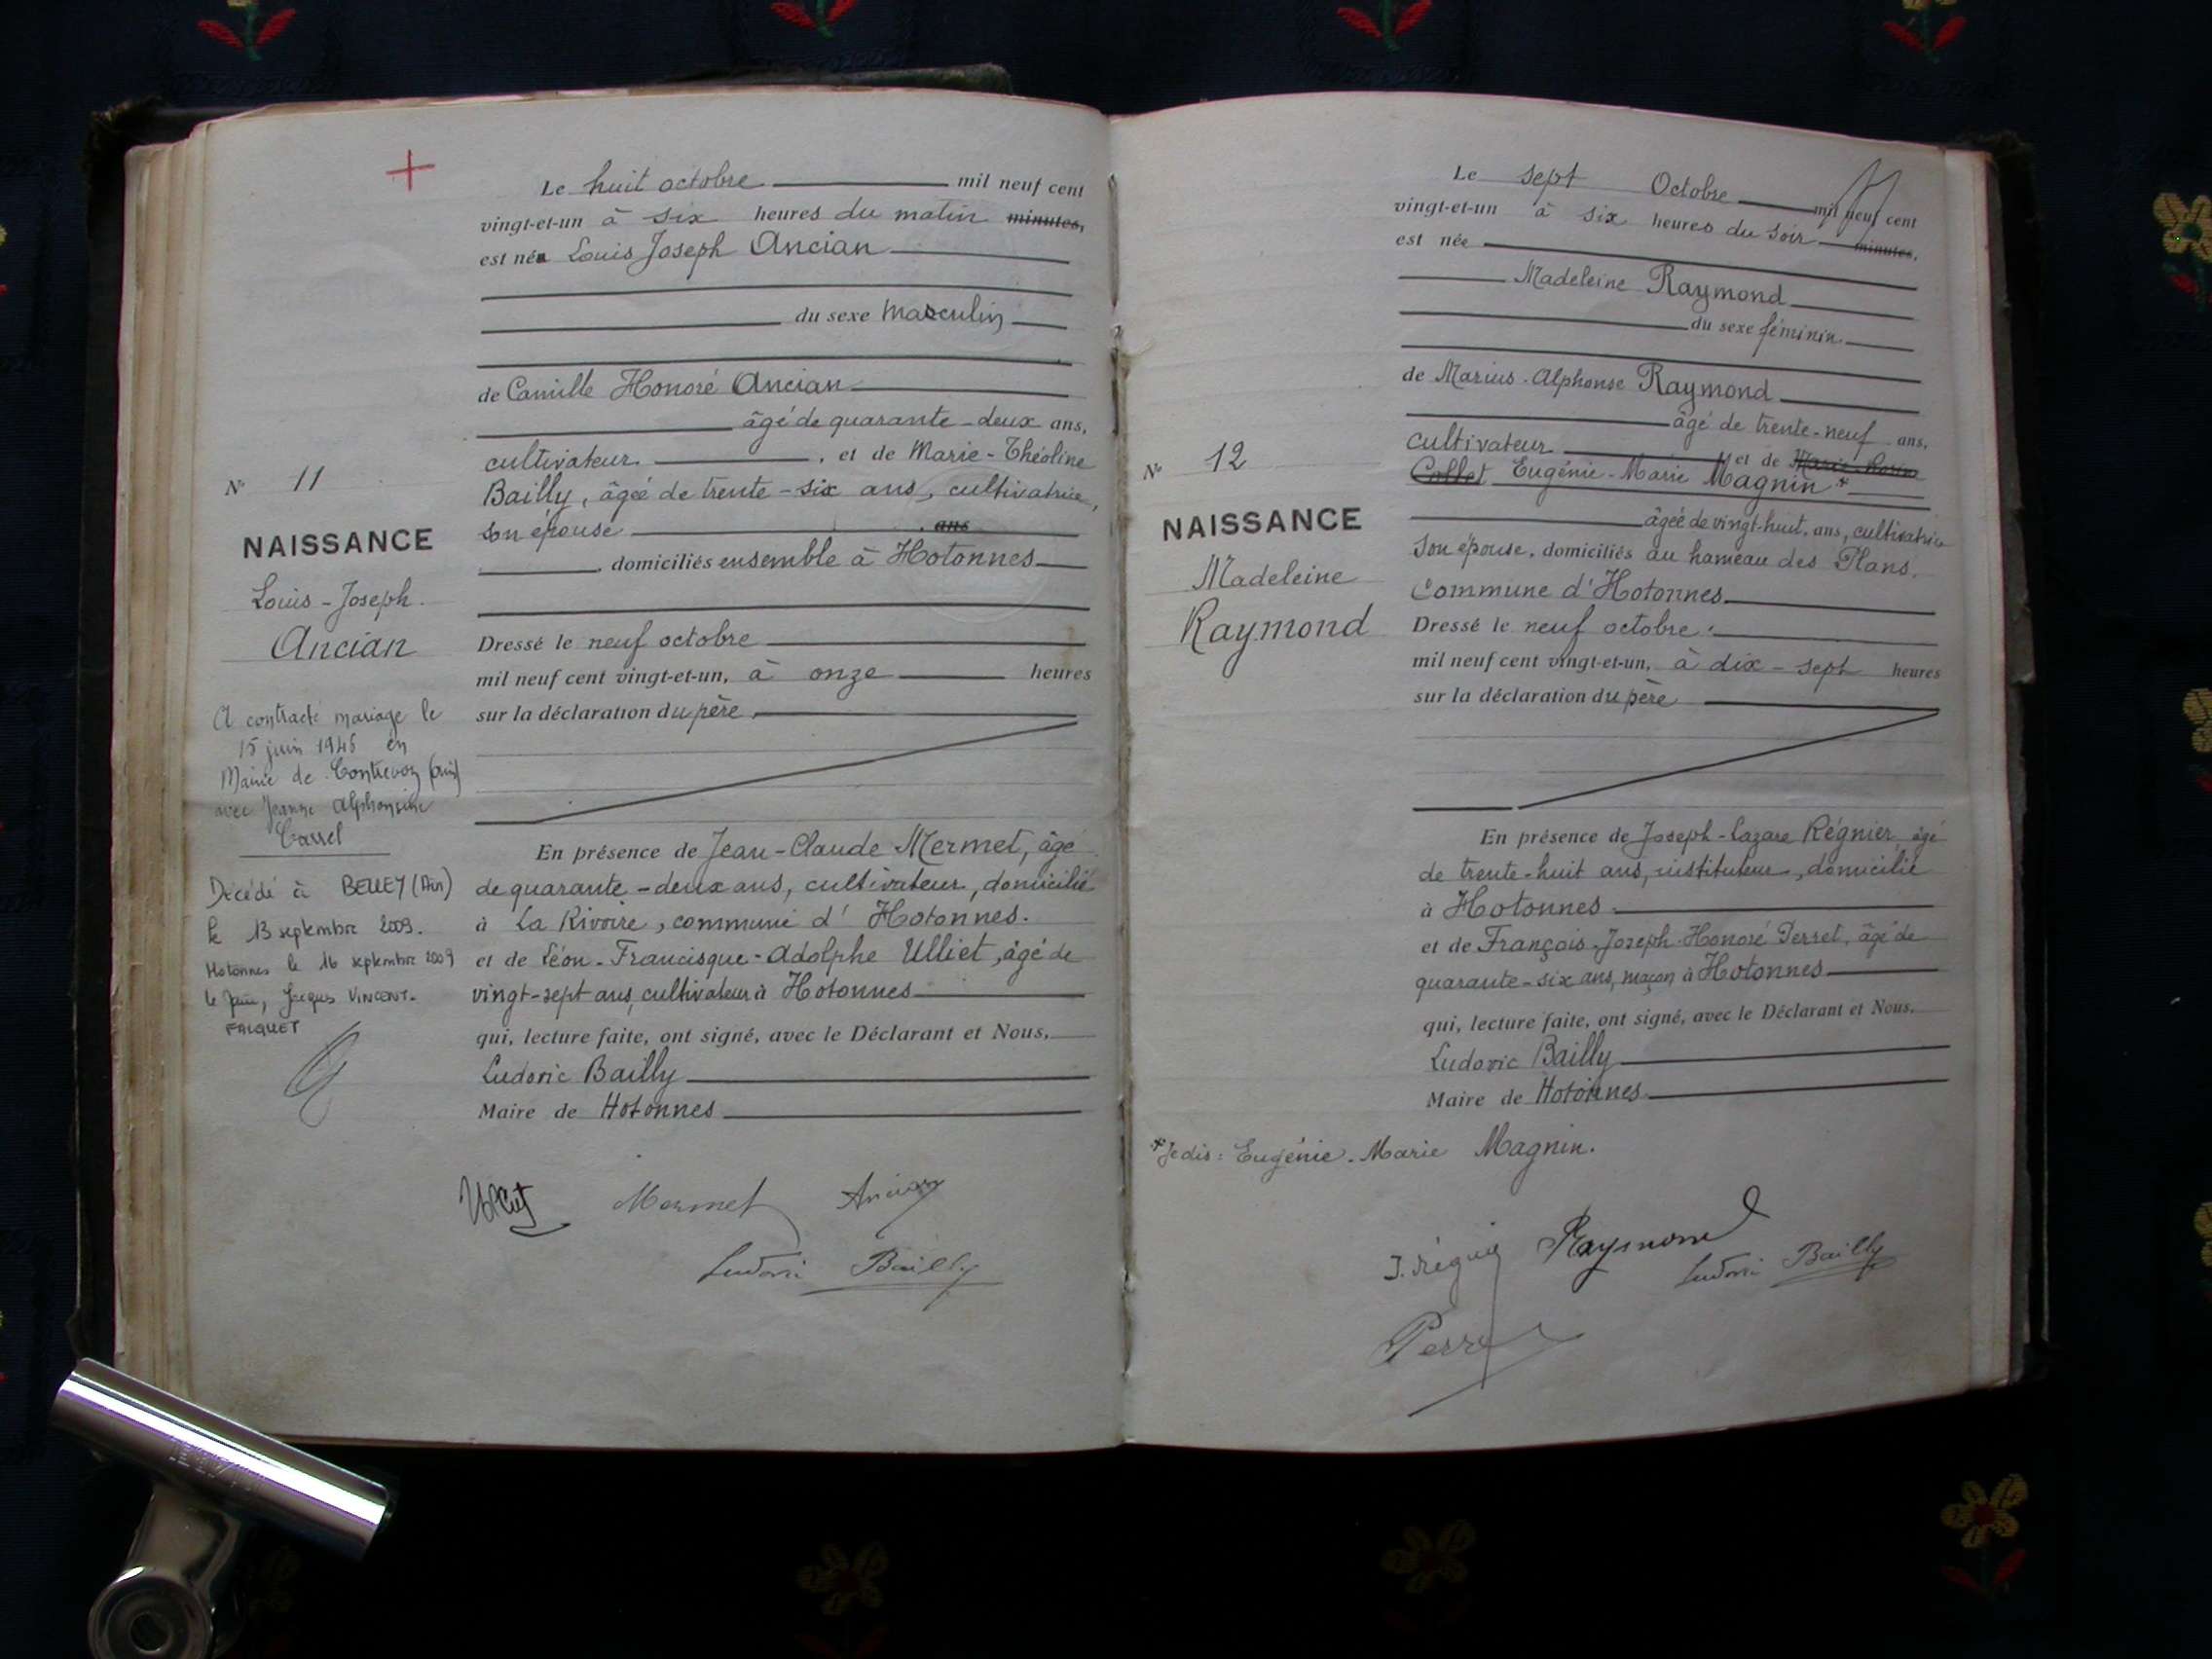 Le huit octobre mil neuf cent
vingt-et-un à six heures du matin minutes,
est né Louis Joseph Ancian
du sexe masculin
de Camille Honoré Ancian
âgé de quarante-deux ans,
cultivateur, et de Marie-Théoline
Bailly, âgée de trente-six ans, cultivatrice,
son épouse, ans
, domiciliés ensemble à Hotonnes
Dressé le neuf octobre
mil neuf cent vingt-et-un, à onze heures
sur la déclaration du père
En présence de Jean-Claude Mermet, âgé
de quarante-deux ans, cultivateur, domicilié
à La Rivoire, commune d'Hotonnes.
et de Léon-Francisque-Adolphe Ulliet, âgé de
vingt-sept ans, cultivateur à Hotonnes
qui, lecture faite, ont signé, avec le Déclarant et Nous,
Ludovic Bailly
Maire de Hotonnes
Mermet Ancian
Ludovic Bailly
N° 11
NAISSANCE
Louis-Joseph
Ancian
A contracté mariage le
15 juin 1946 en
Mairie de Contrevoz (Ain)
avec Jeanne Alphonsine
Décédé à BELLEY (Ain)
le 13 septembre 2009.
Hotonnes le 16 septembre 2009
Jacques VINCENT-
FALQUET
Le sept Octobre mil neuf cent
vingt-et-un à six heures du soir minutes,
est née
Madeleine Raymond
du sexe féminin
de Marius-Alphonse Raymond
âgé de trente-neuf ans,
cultivateur et de
Eugénie-Marie Magnin *
âgée de vingt-huit, ans, cultivatrice
son épouse, domiciliés au hameau des Plans,
Commune d'Hotonnes
Dressé le neuf octobre
mil neuf cent vingt-et-un, à dix-sept heures
sur la déclaration du père
En présence de Joseph-Lazare Régnier, âgé
de trente-huit ans, instituteur, domicilié
à Hotonnes
et de François-Joseph-Honoré Perret, âgé de
quarante-six ans, maçon à Hotonnes
qui, lecture faite, ont signé, avec le Déclarant et Nous,
Ludovic Bailly
Maire de Hotonnes
* Je dis: Eugénie-Marie Magnin.
Raymond
Ludovic Bailly
Perret
N° 12
NAISSANCE
Madeleine
Raymond